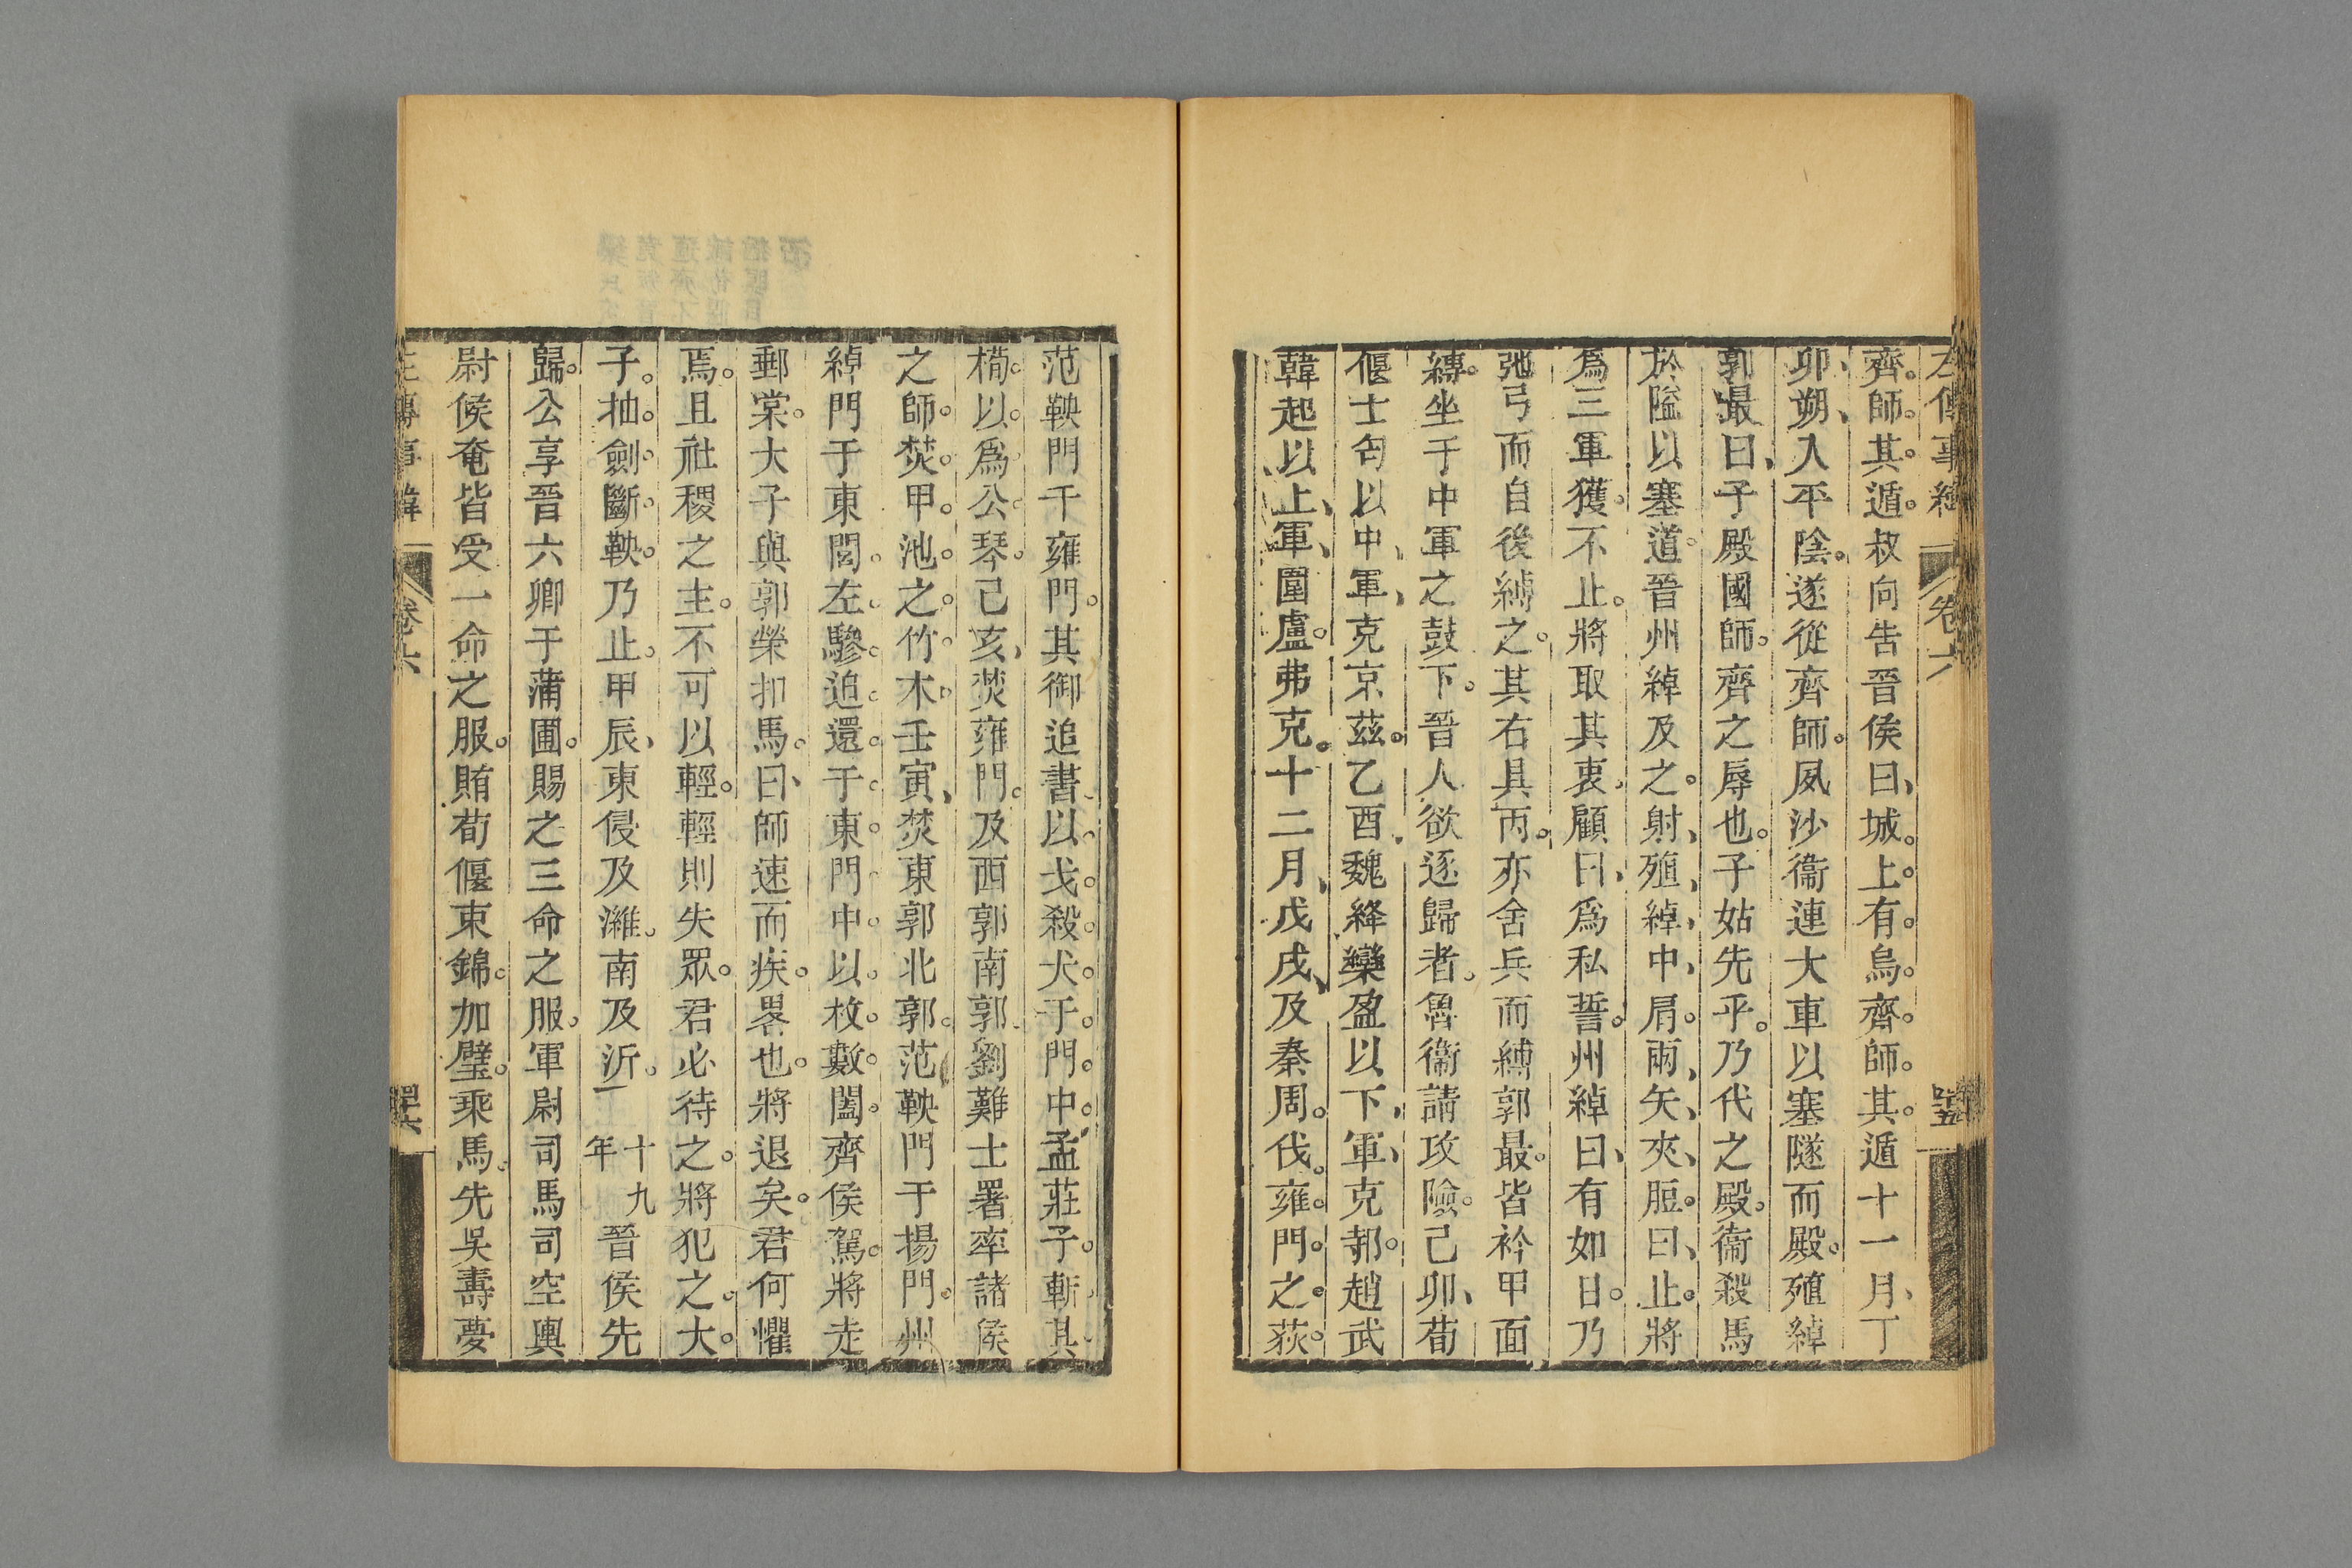 左傳事緯 卷六 四十五
齊師其遁叔向告晉侯曰城上有烏齊師其遁十一月丁
卯朔入平陰遂從齊師夙沙衞連大車以塞隧而殿殖綽
郭最曰子殿國師齊之辱也子姑先乎乃代之殿衞殺馬
於隘以塞道晉州綽及之射殖綽中肩兩矢夾脰曰止將
爲三軍獲不止將取其衷顧曰爲私誓州綽曰有如日乃
弛弓而自後縛之其右具丙亦舍兵而縛郭最皆衿甲面
縛坐于中軍之鼓下晉人欲逐歸者魯衞請攻險己卯荀
偃士匄以中軍克京茲乙酉魏絳欒盈以下軍克邿趙武
韓起以上軍圍盧弗克十二月戊戌及秦周伐雍門之萩
范鞅門于雍門其御追書以戈殺犬于門中孟莊子斬其
橁以爲公琴己亥焚雍門及西郭南郭劉難士署率諸侯
之師焚申池之竹木壬寅焚東郭北郭范鞅門于揚門州
綽門于東閭左驂迫還于東門中以枚數闔齊侯駕將走
郵棠大子與郭榮扣馬曰師速而疾畧也將退矣君何懼
焉且社稷之主不可以輕輕則失眾君必待之將犯之大
子抽劍斷鞅乃止甲辰東侵及濰南及沂 十九年 晉侯先
歸公享晉六卿于蒲圃賜之三命之服軍尉司馬司空輿
尉候奄皆受一命之服賄荀偃束錦加璧乘馬先吳壽夢
左傳事緯 卷六 四十六